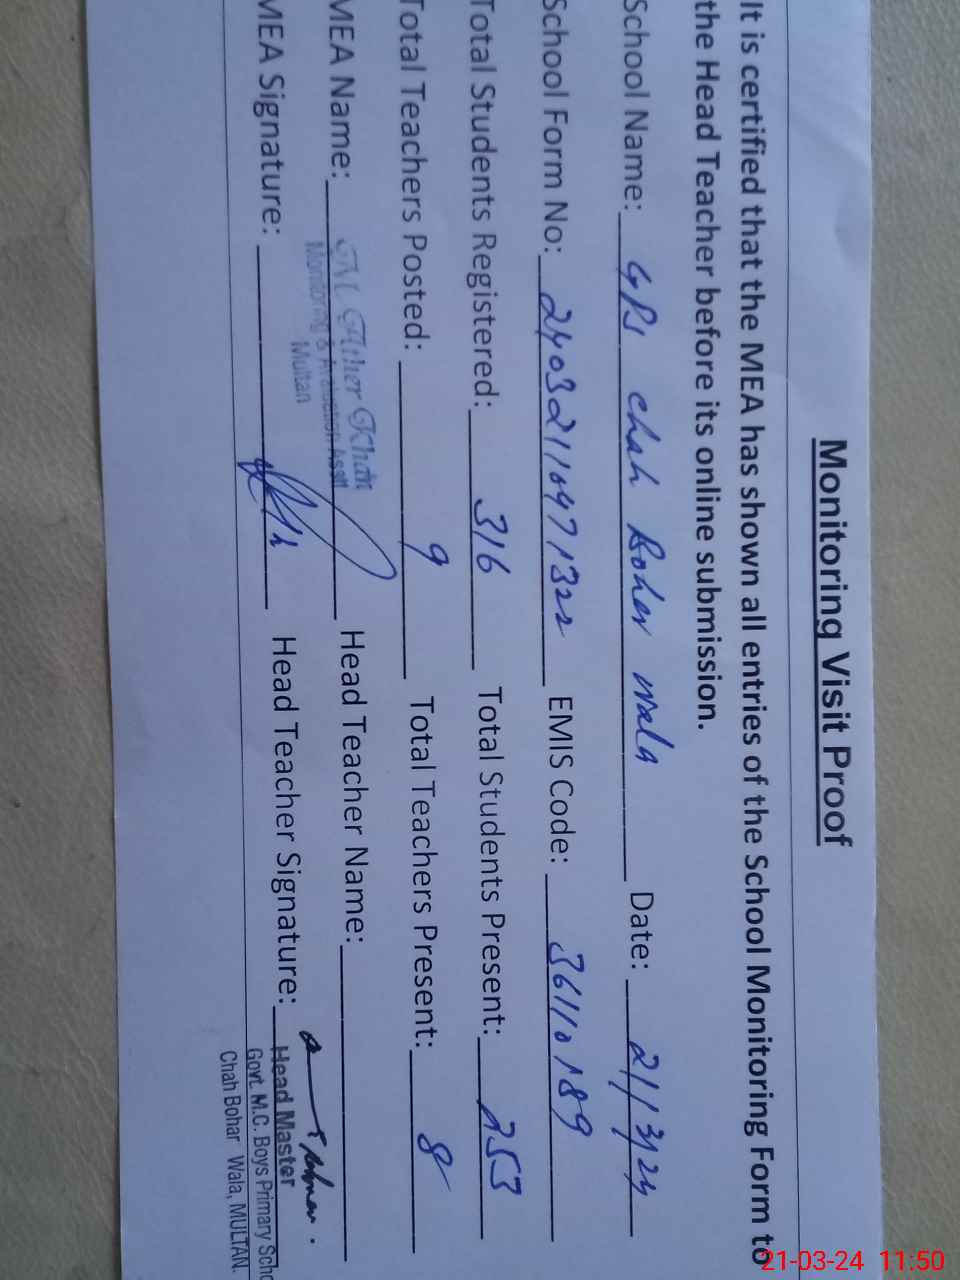 Monitoring Visit Proof
It is certified that the MEA has shown all entries of the School Monitoring Form to
the Head Teacher before its online submission.
School Name: GPS chah Boher wala Date: 21/3/24
School Form No: 240321109471322 EMIS Code: 36110189
Total Students Registered: 316 Total Students Present: 253
Total Teachers Posted: 9 Total Teachers Present: 8
MEA Name: M. Ather Khan Head Teacher Name:
Monitoring &
Multan
MEA Signature: Head Teacher Signature:
Head Master
Govt. M.C. Boys Primary Scho
Chah Bohar Wala, MULTAN.
21-03-24 11:50